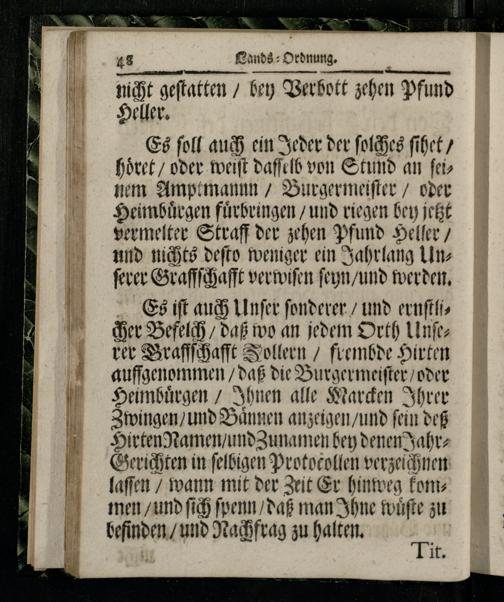 48 Lands-Ordnung.
nicht gestatten / bey Verbott zehen Pfund
Heller.
Es soll auch ein Jeder der solches sihet /
höret / oder weist dasselb von Stund an sei-
nem Amptmannn / Burgermeister / oder
Heimbürgen fürbringen / und riegen bey jetzt
vermelter Straff der zehen Pfund Heller /
und nichts desto weniger ein Jahrlang Un-
serer Graffschafft verwisen seyn / und werden.
Es ist auch Unser sonderer / und ernstli-
cher Befelch / daß wo an jedem Orth Unse-
rer Graffschafft Zollern / frembde Hirten
auffgenommen / daß die Burgermeister / oder
Heimbürgen / Ihnen alle Marcken Ihrer
Zwingen / und Bännen anzeigen / und sein deß
Hirten Namen / und Zunamen bey denen Jahr-
Gerichten in selbigen Protocollen verzeichnen
lassen / wann mit der Zeit Er hinweg kom-
men / und sich spenn / daß man Ihne wüste zu
befinden / und Nachfrag zu halten.
Tit.